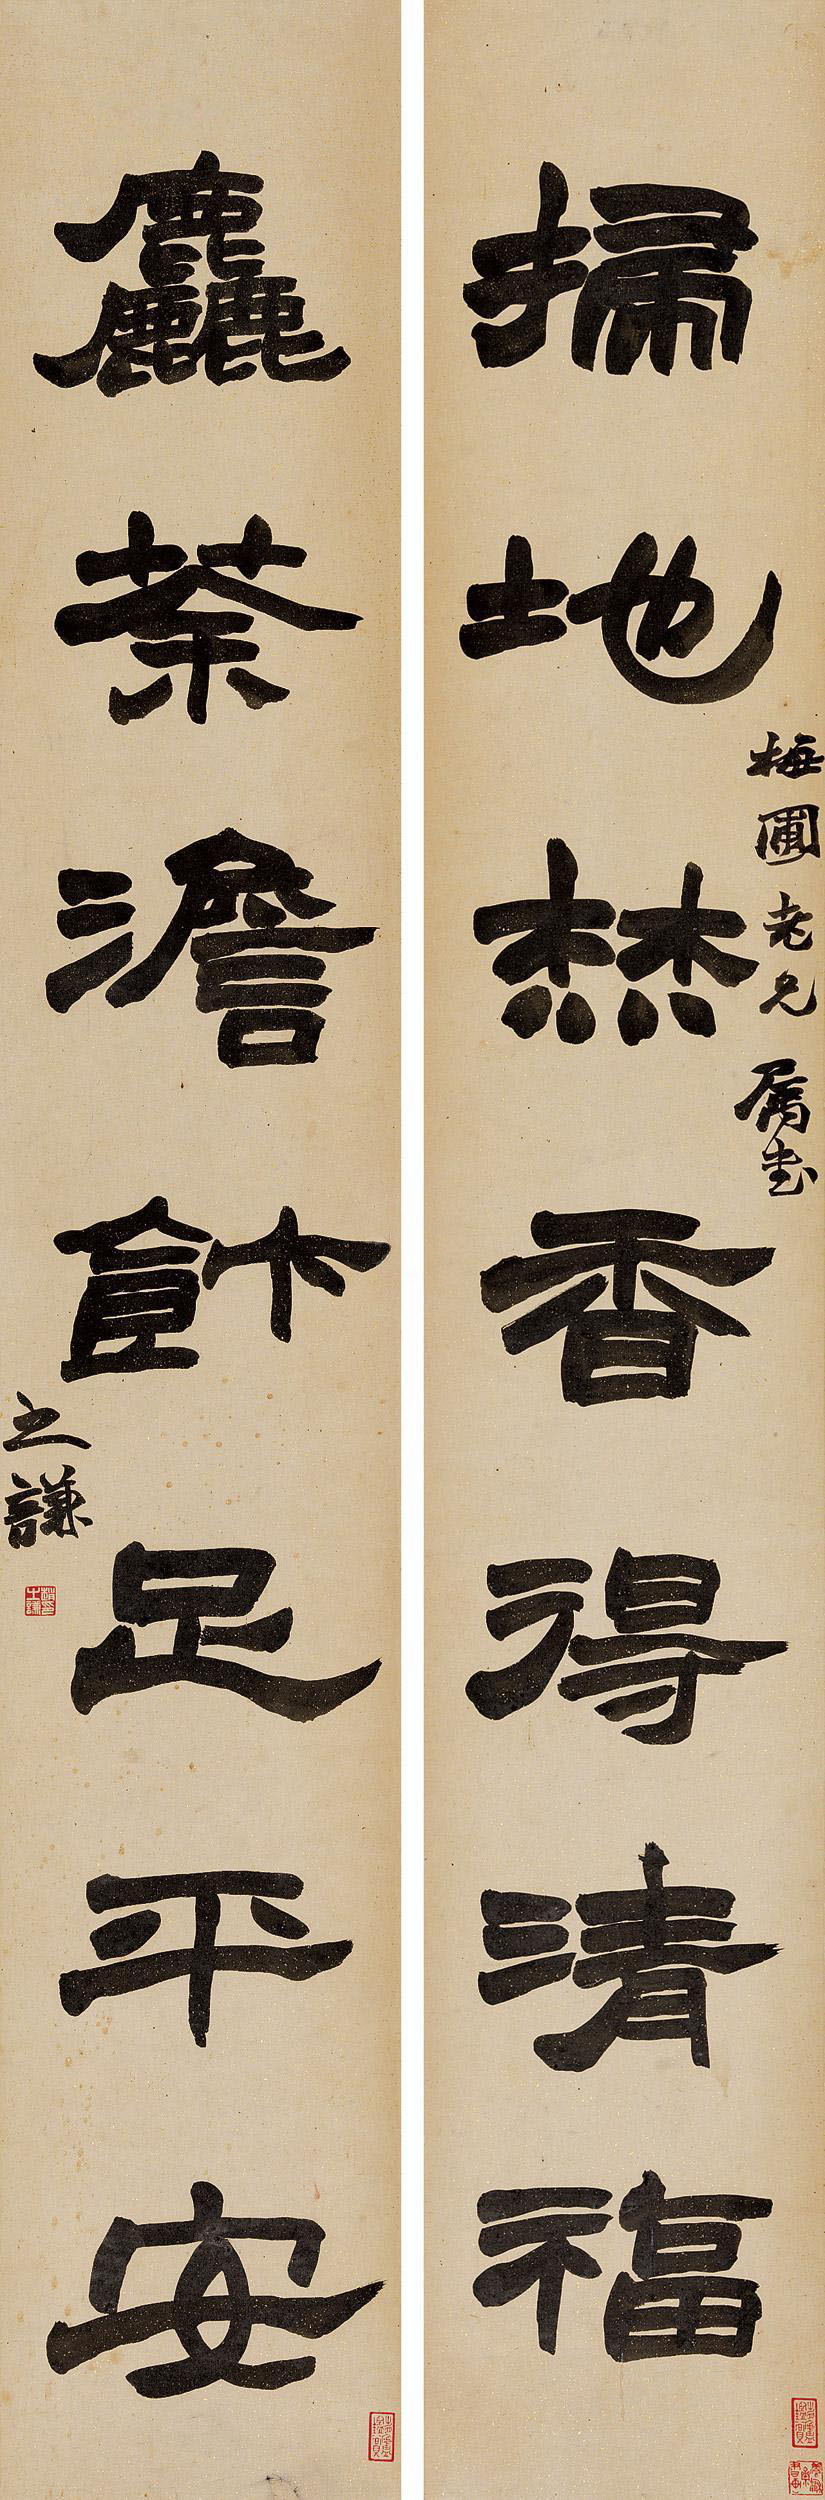 梅圃老兄属書
掃地焚香得清福
麤茶澹飰足平安
之謙